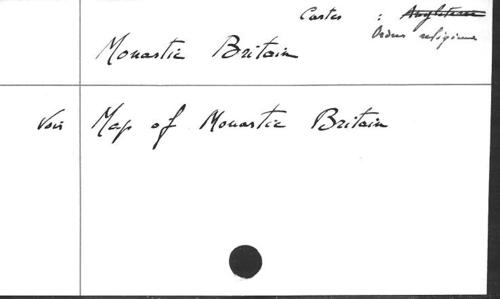 Cartes : Angleterre
Ordres religieux
Monastic Britain
Voir Map of Monastic Britain